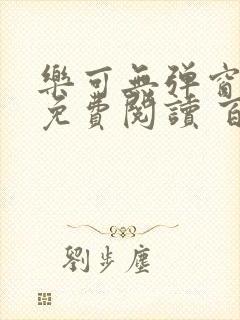 樂可無彈窗
免費閱讀 百
劉步塵